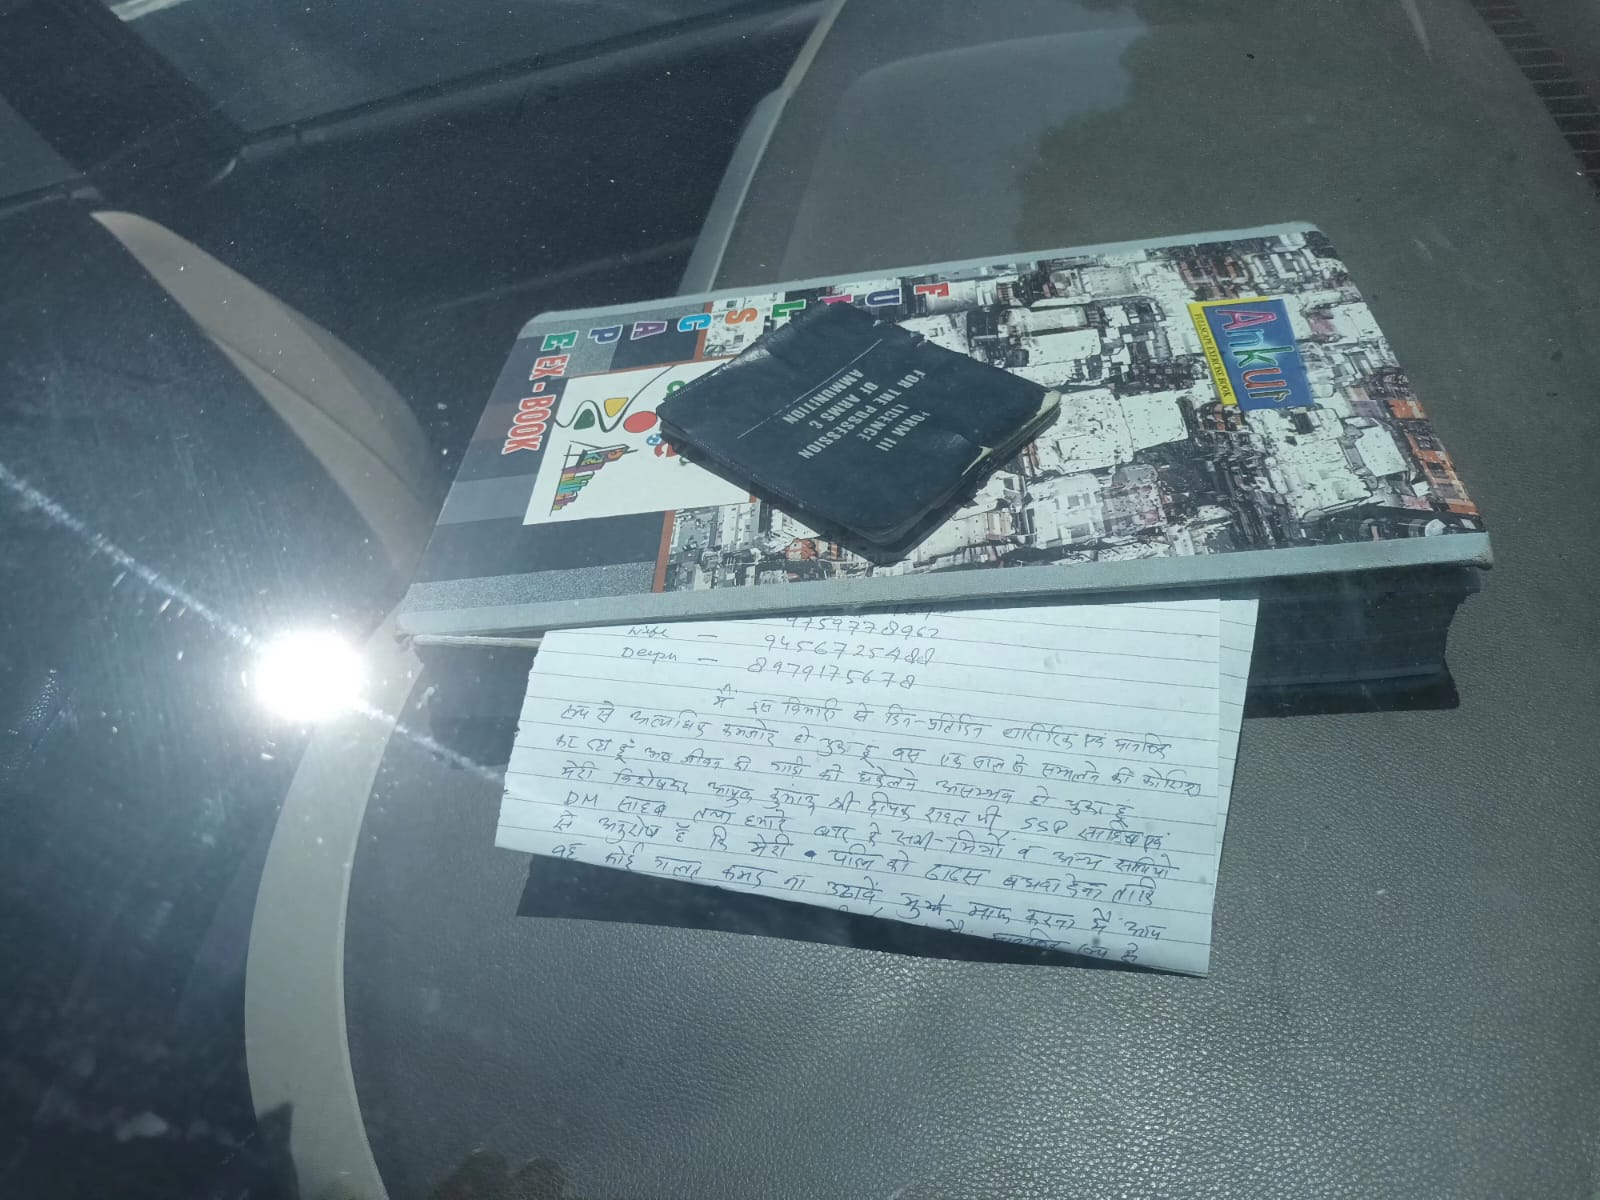 Ankur
FULLSCAPE EXERCISE BOOK
FULLSCAPE
EX-BOOK
FORM III
LICENCE
FOR THE POSSESSION
OF ARMS &
AMMUNITION
9759778962
wife - 9456725488
- 8979175678
मैं इस बिमारी से दिन-प्रतिदिन शारीरिक एवं मानसिक
रूप से अत्याधिक कमजोर हो चुका हूं बस एक साल से सम्भलने की कोशिश
कर रहा हूँ अब जीवन की गाडी को धकेलने असम्भव हो चुका हूं
मेरी विशेषकर आयुक्त कुमांऊ श्री दीपक रावत जी SSP साहिब एवं
DM साहब तथा हमारे के सभी मित्रों व अन्य साथियो
से अनुरोध है कि मेरी पत्नि को ढाढस बधवा देना ताकि
वह कोई गलत कमद ना उठावें मुझे माफ करना मैं आप
मानसिक रूप से